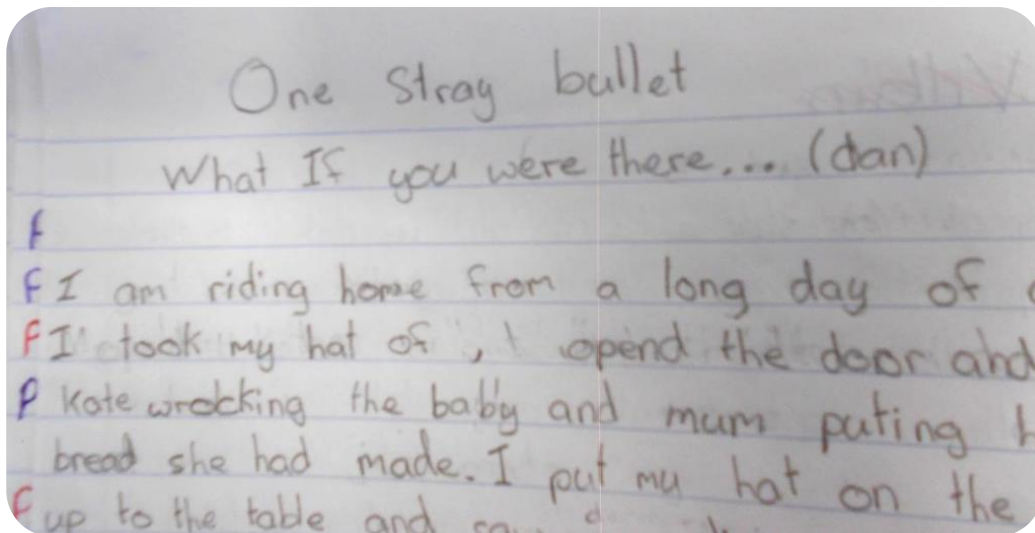 One Stray bullet
What If you were there... (dan)
f
F I am riding home from a long day of
F I took my hat of, I opend the door and
P Kate wrocking the baby and mum puting
bread she had made. I put my hat on the
F up to the table and